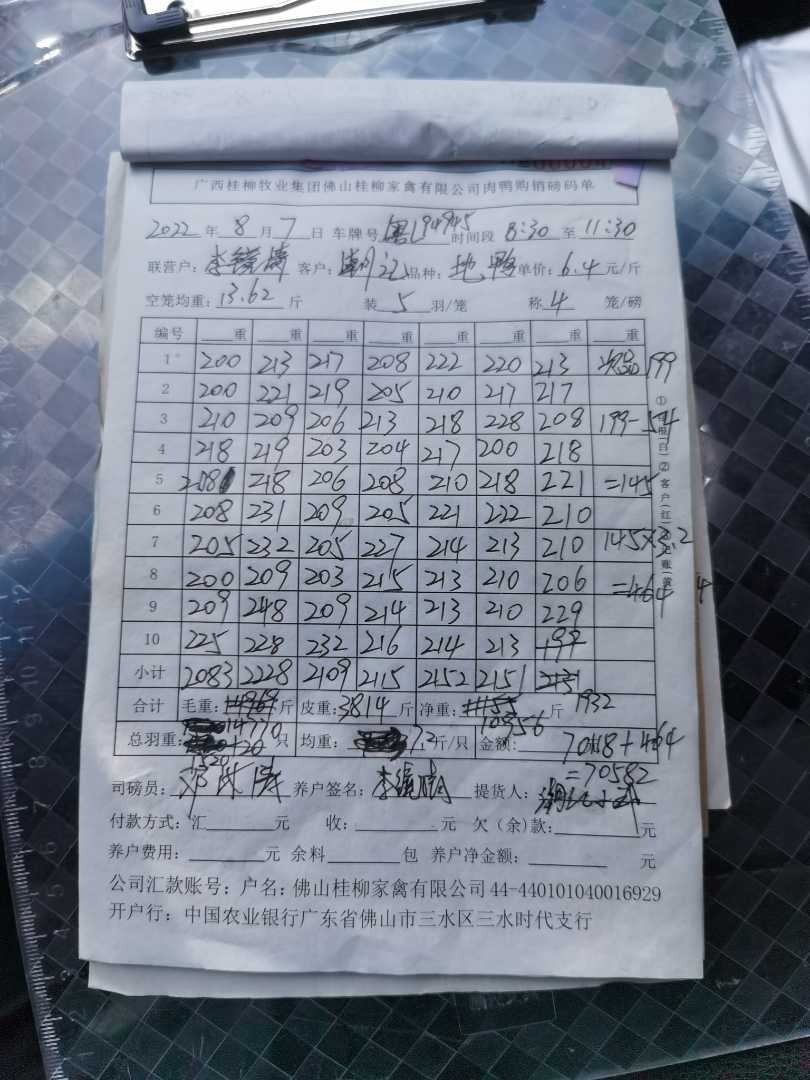 广西桂柳牧业集团佛山桂柳家禽有限公司肉鸭购销磅码单
2022 年 8 月 7 日 车牌号 粤L94945 时间段 8:30 至 11:30
联营户: 客户: 潮记 品种: 地鸭 单价: 6.4 元/斤
空笼均重: 13.62 斤 装 5 羽/笼 称 4 笼/磅
编号 重 重 重 重 重 重 重 重
1 200 213 217 208 222 220 213 次品199
2 200 221 219 205 210 217 217
3 210 209 206 213 218 228 208 199-54
4 218 219 203 204 217 200 218
5 208 218 206 208 210 218 221 =145
6 208 231 209 205 221 222 210
7 205 232 205 227 214 213 210 145×3.2
8 200 209 203 215 213 210 206 =464
9 209 248 209 214 213 210 229
10 225 228 232 216 214 213 199
小计 2083 2228 2109 2115 2152 2151 2131 1932
合计 毛重: 14969 斤 皮重: 3814 斤 净重: 11155 斤
14770 10956
总羽重: +20 只 均重: 7.2 斤/只 金额: 70118+464
1520 =70582
司磅员: 养户签名: 提货人:
付款方式: 汇 元 收: 元 欠(余)款: 元
养户费用: 元 余料 包 养户净金额: 元
公司汇款账号: 户名: 佛山桂柳家禽有限公司 44-440101040016929
开户行: 中国农业银行广东省佛山市三水区三水时代支行
①
(白)
②客户(红)